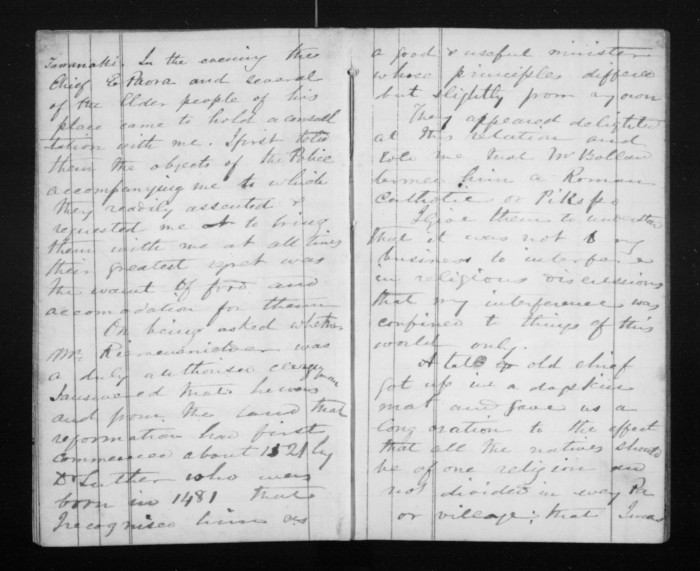 Taranaki. In the evening the
Chief E Paora and several
of the Elder people of his
place came to hold a consul
tation with me. I first told
them the objects of the Police
accompanying me to which
they readily assented &
requested me to bring
them with me at all times
their greatest regret was
the want of food and
accomodation for them
On being asked whether
Mr Riemenschneider was
a duly authorised clergyman
I answered that he was
and from the land that
reformation had first
commenced about 1521 by
Dr Luther who was
born in 1481 that
I recognised him as
a good & useful minister
whose principles differed
but slightly from my own
They appeared delighted
at this relation and
told me that Mr Bolland
termed him a Roman
Catholic or Pikopo
I give them to understand
that it was not my
business to interfere
in religious discussions
that my interference was
confined to things of this
world only.
A tall old chief
got up in a dogskin
mat and gave us a
long oration to the effect
that all the natives should
be of one religion an
not divided in every Pa
or village; that I was